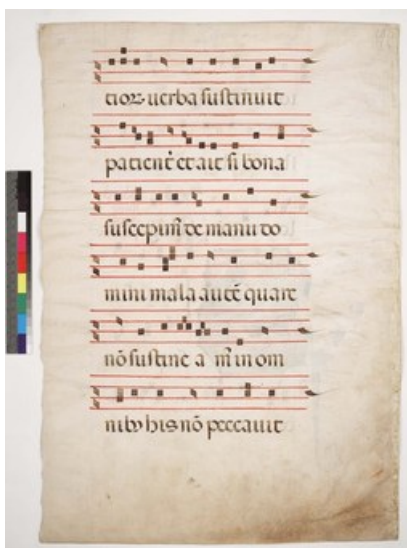 tioꝝ uerba sustinuit
patient̃ et ait si bona
suscepim̃ de manu do
mini mala autẽ quare
nõ sustine a m̃ in om
nibꝫ his nõ peccauit